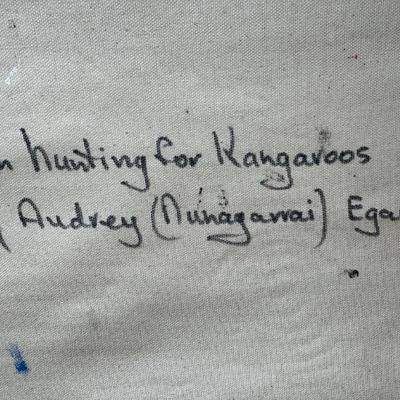 n hunting for Kangaroos
Audrey (Nunagawai) Ega